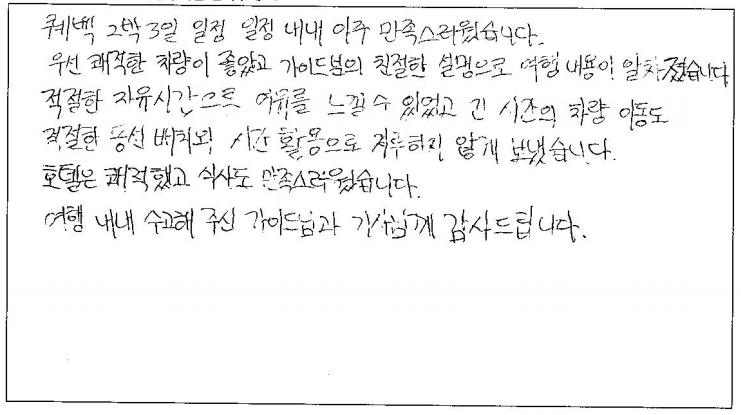 퀘백 2박 3일 일정 일정 내내 아주 만족스러웠습니다.
우선 쾌적한 차량이 좋았고 가이드님의 친절한 설명으로 여행 내용이 알차졌습니다
적절한 자유시간으로 여유를 느낄 수 있었고 긴 시간의 차량 이동도
적절한 동선 배치와 시간 활용으로 지루하지 않게 보냈습니다.
호텔은 쾌적했고 식사도 만족스러웠습니다.
여행 내내 수고해 주신 가이드님과 기사님께 감사드립니다.